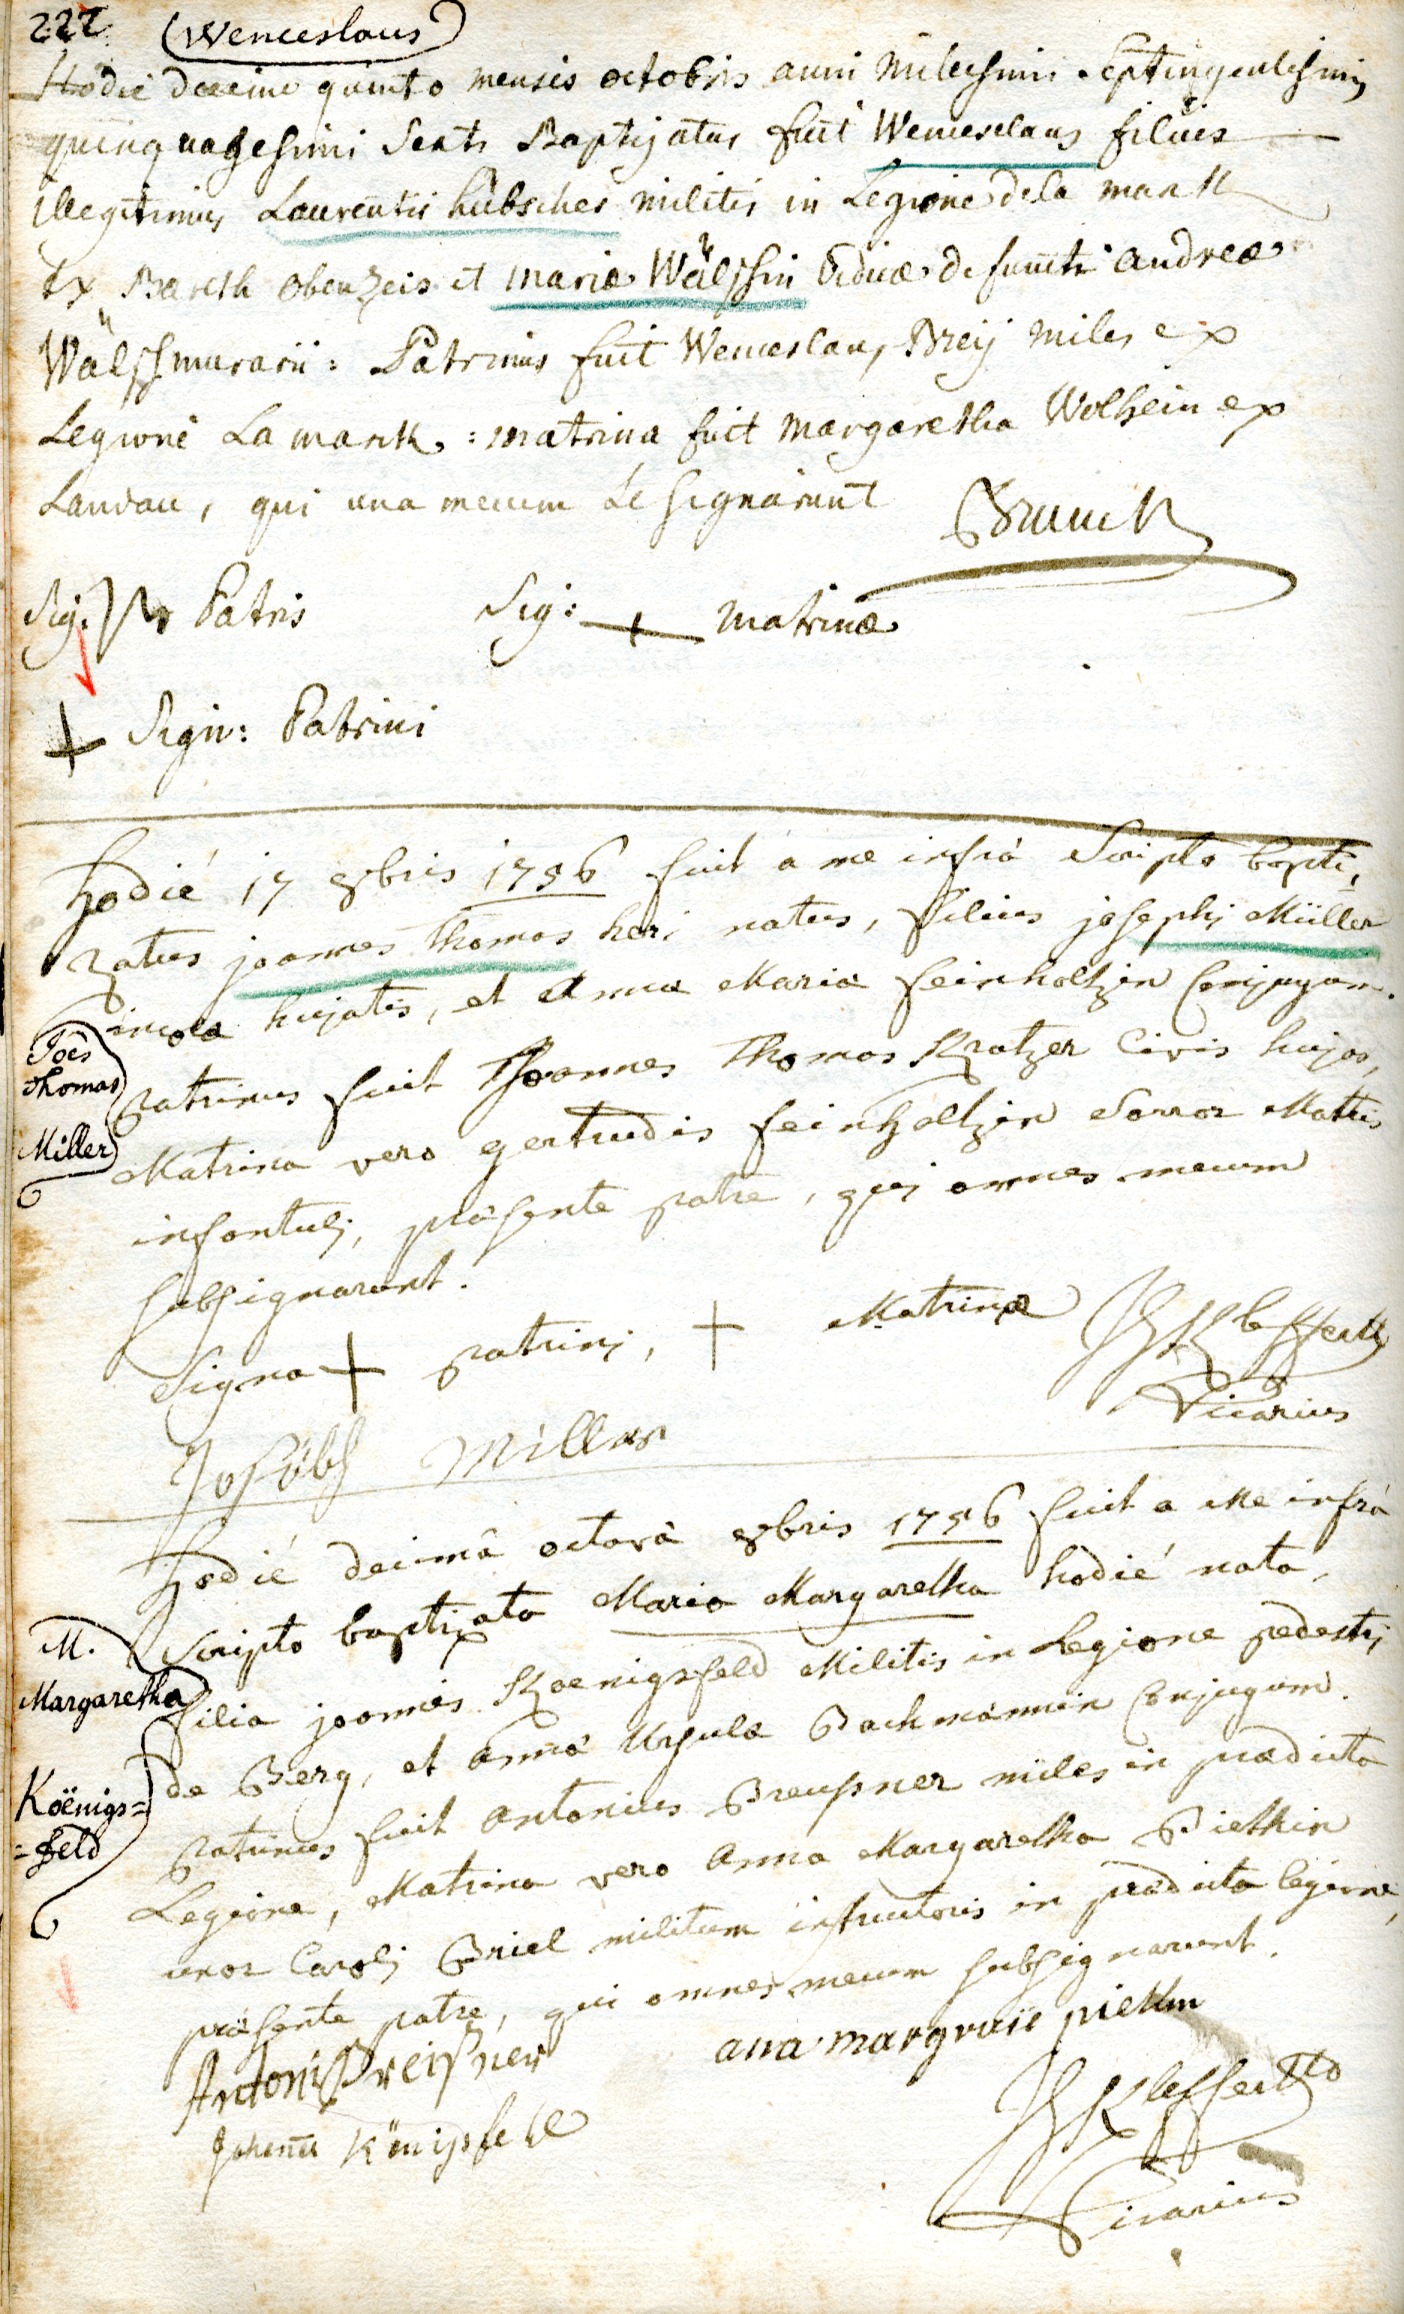 222 (Wenceslaus)
Hodie decimo quinto mensis octobris anni Millesimi Septingentesimi
quinquagesimi Sexti Baptizatus fuit Wenceslaus filius
illegitimus Laurentii hübscher militis in Legione de la marck
ex Bareth et mariæ Wälssin viduæ defuncti andreæ
Wälss murarii: Patrinus fuit Wenceslaus Breÿ miles ex
Legione La marck: matrina fuit Margaretha Wolhein ex
Landau, qui una mecum se signarunt Brunck
Sig: Patris Sig: + matrinæ
+ Sign: Patrini
hodié 17 8bris 1756 fuit á me infrá Scripto bapti,
zatus joannes thomas heri natus, filius josephj Müller
incola hujatis, et Annæ Mariæ feinholtzin Conjugum.
Joes
thomas
Miller
patrinus fuit Joannes Thomas Kratzer Civis hujas,
Matrina vero gertrudis feinholtzin Soror Matris
infantulj, præsente patre, qui omnes mecum
subsignarunt.
Signa + patrinj, + Matrinæ JJ Kleffert
Vicarius
Josübh Miller
hodié decimâ octavâ 8bris 1756 fuit a Me infrá
Scripto baptizata Maria Margaretha hodié nata,
M.
Margaretha
Koënigs=
=feld
filia joannis Koenigsfeld Militis in Legione pedestrj
de Berg, et annæ Ursulæ Bachmännin Conjugum.
patrinus fuit Antonius Preusner miles in prædicta
Legione, Matrina vero Anna Margaretha Piethin
uxor Carolj Briel militum instructoris in prædicta legione,
præsente patre, qui omnes mecum subsignarunt.
Antoni Preisner ana margraie piethin
Johannes Königsfeld JJ Kleffert
Vicarius